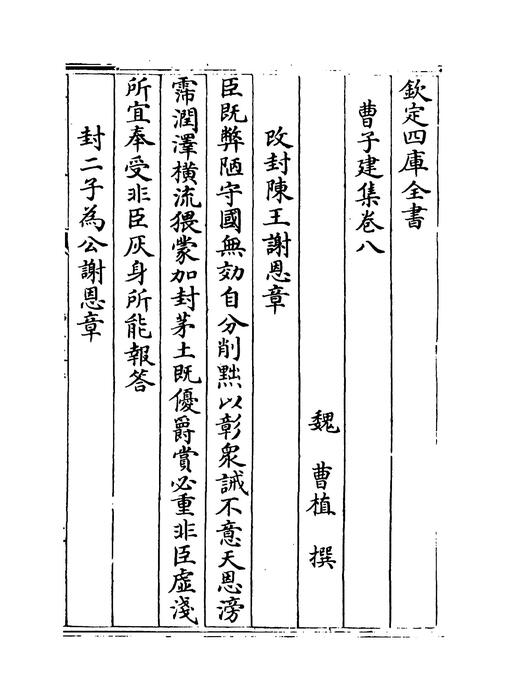 欽定四庫全書
曹子建集卷八
魏 曹植 撰
改封陳王謝恩章
臣既弊陋守國無効自分削黜以彰衆誡不意天恩滂
霈潤澤橫流猥蒙加封茅土既優爵賞必重非臣虛淺
所宜奉受非臣灰身所能報答
封二子為公謝恩章